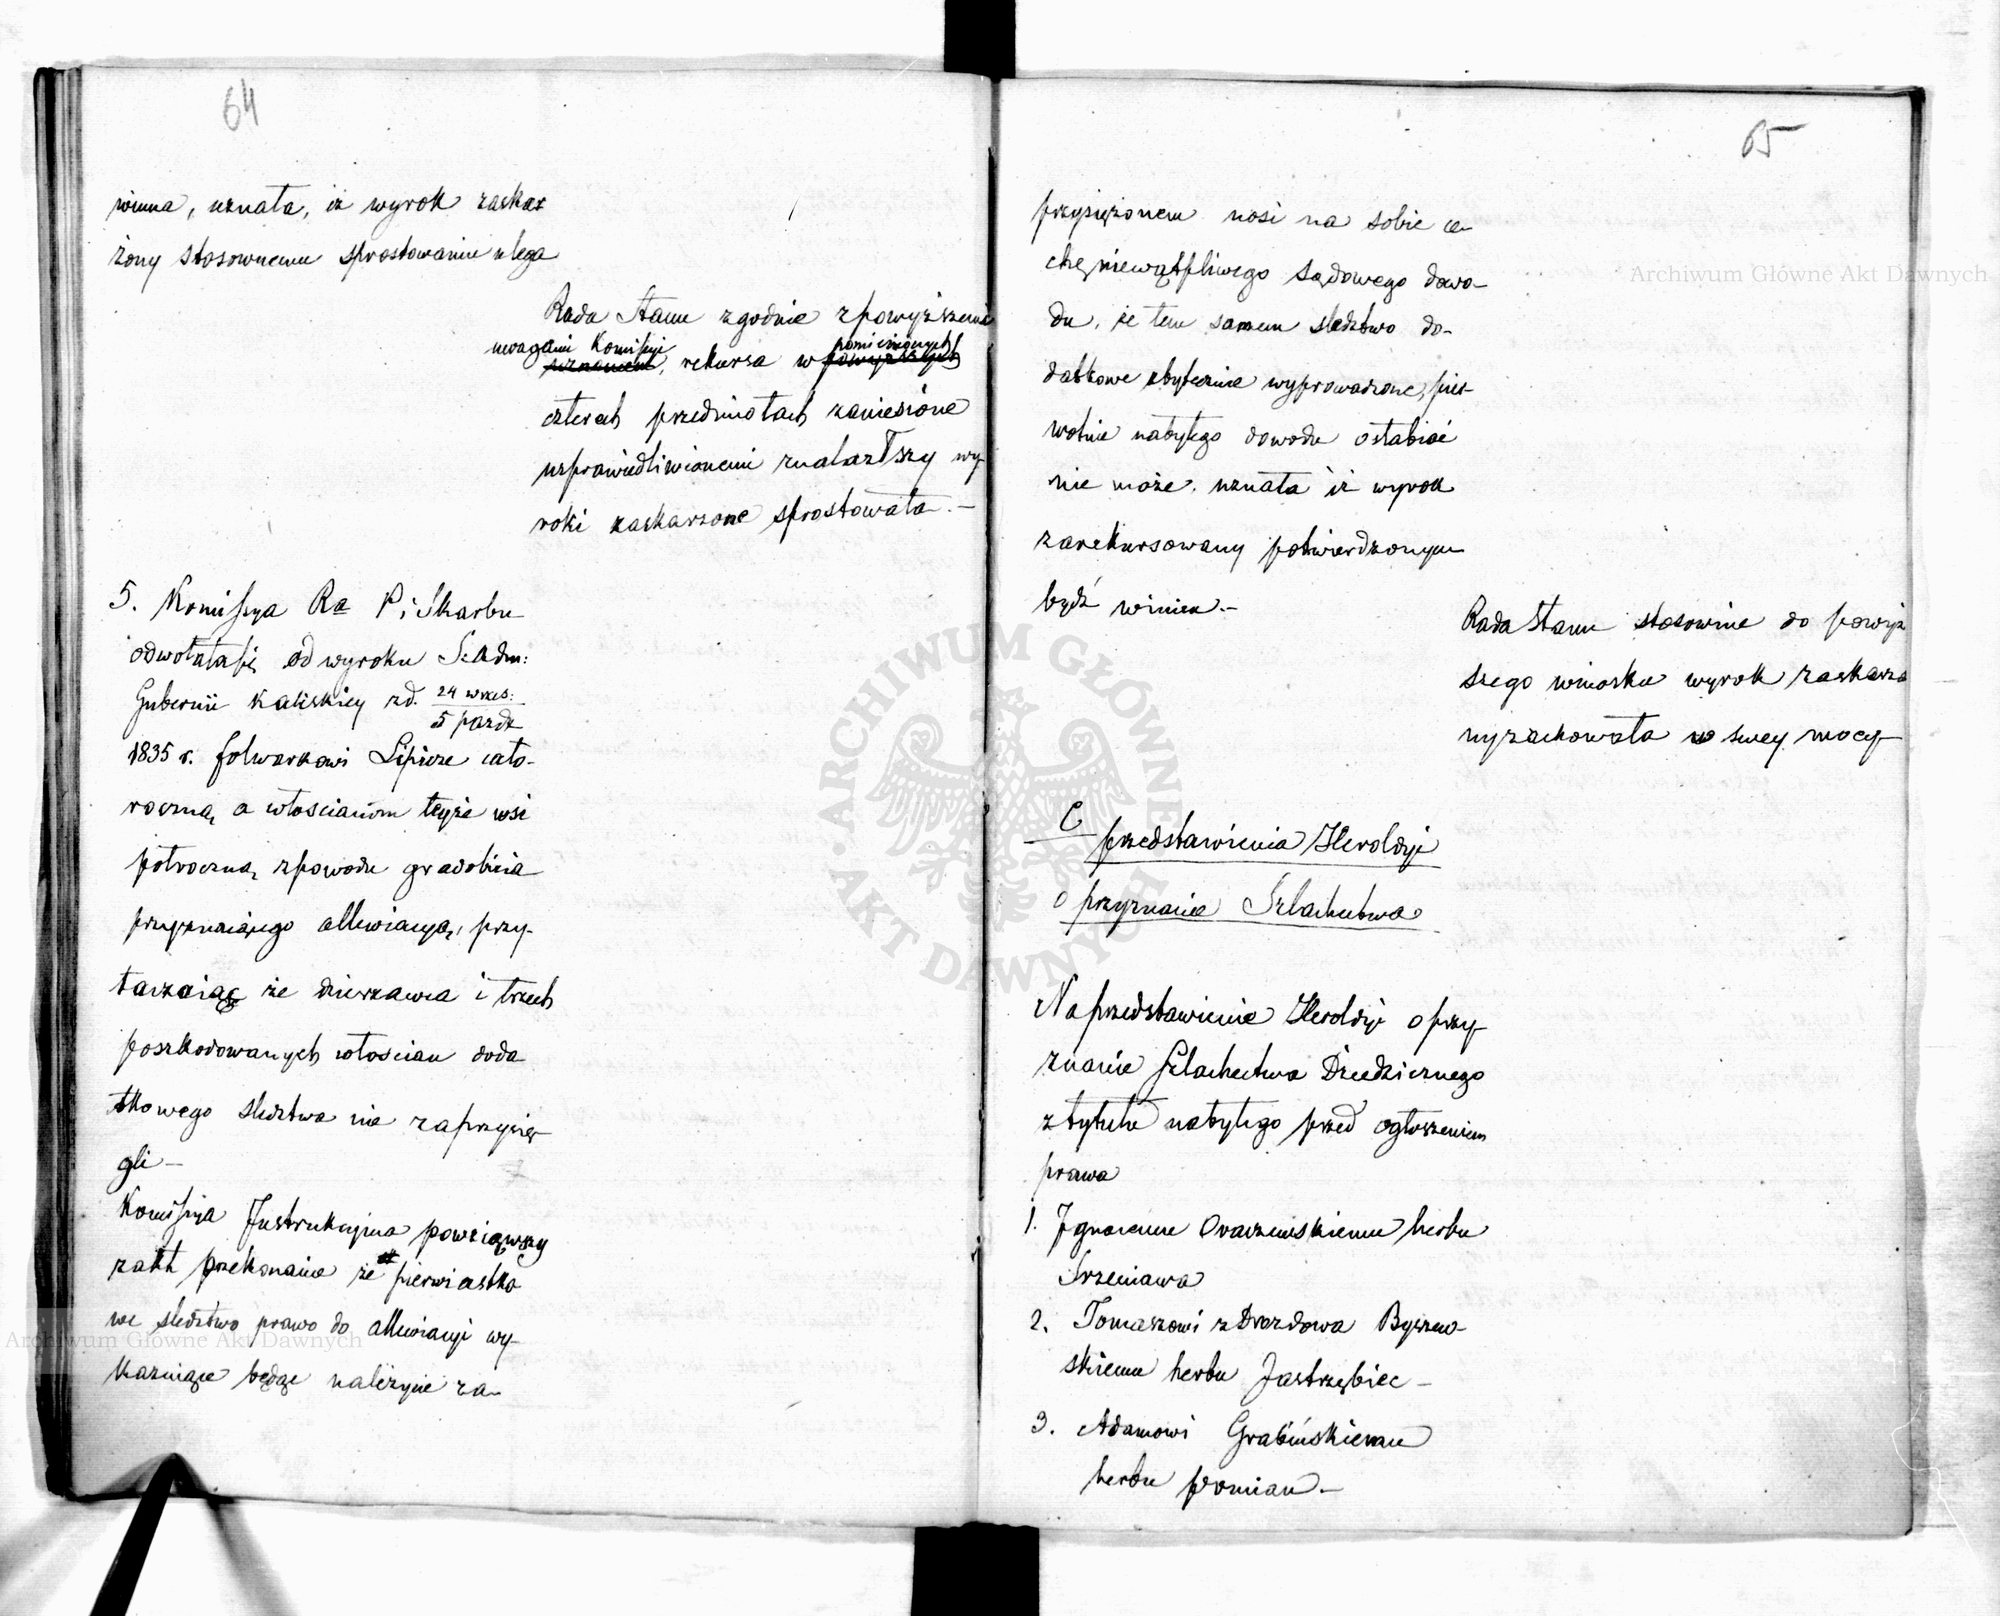 64
winna, uznała, iż wyrok zaskar
żony stosownemu sprostowaniu ulega
Rada Stanu zgodnie z powyższemi
uwagami Komissyi, rekursa w pomienionych
czterech przedmiotach zaniesione
usprawiedliwionemi znalazłszy wy-
roki zaskarżone sprostowała.—
5. Komissya Ra P i Skarbu
odwołała się od wyroku S. Adm:
Gubernii Kaliskiey z d. 24 wrzes: / 5 paźdz
1835 r. folwarkowi Lipicze cało-
roczną a włościanom teyże wsi
półroczną z powodu gradobicia
przyznaiącego allewiacyą, przy-
taczaiąc że dzierzawca i trzech
poszkodowanych włościan doda
tkowego sledztwa nie zaprzysię-
gli —
Komissya Instrukcyjna powziąwszy
z akt przekonanie że pierwiastko
we sledztwo prawo do allewiacyi wy-
kazuiące będąc należycie za-
65
przysiężonem nosi na sobie ce-
chę niewątpliwego sądowego dowo-
du, że tem samem sledztwo do-
datkowe zbytecznie wyprowadzone, pier-
wotnie nabytego dowodu osłabiać
nie może, uznała iż wyrok
zarekursowany potwierdzonym
bydź winien.—
Rada Stanu stosownie do powyż
szego wniosku wyrok zaskarżo
ny zachowała w swey mocy
C
przedstawienia Heroldyi
o przyznanie Szlachectwa
Na przedstawienie Heroldyi o przy-
znanie Szlachectwa Dziedzicznego
z tytułu nabytego przed ogłoszeniem
prawa
1. Ignacemu Owarzewskiemu herbu
Srzeniawa
2. Tomaszowi z Drozdowa Byszew-
skiemu herbu Jastrzębiec —
3. Adamowi Grabińskiemu
herbu pomian.—
Archiwum Główne Akt Dawnych
Archiwum Główne Akt Dawnych
ARCHIWUM GŁÓWNE • AKT DAWNYCH •